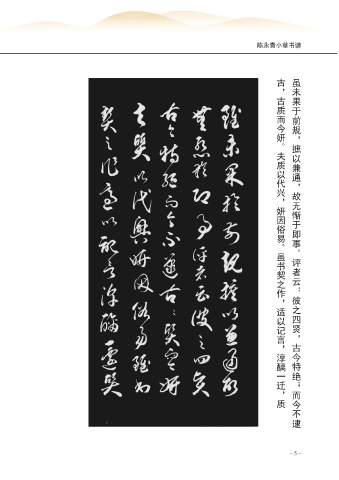 陈永贵小草书谱
虽未果于前规，摭以兼通，故无惭于即事。评者云：彼之四贤，古今特绝；而今不逮
古，古质而今妍。夫质以代兴，妍因俗易。虽书契之作，适以记言，淳醨一迁，质
雖未果於前規摭以兼通故
無慚於即事評者云彼之四賢
古今特絕而今不逮古古質而今妍
夫質以代興妍因俗易雖書
契之作適以記言淳醨一遷質
– 5 –